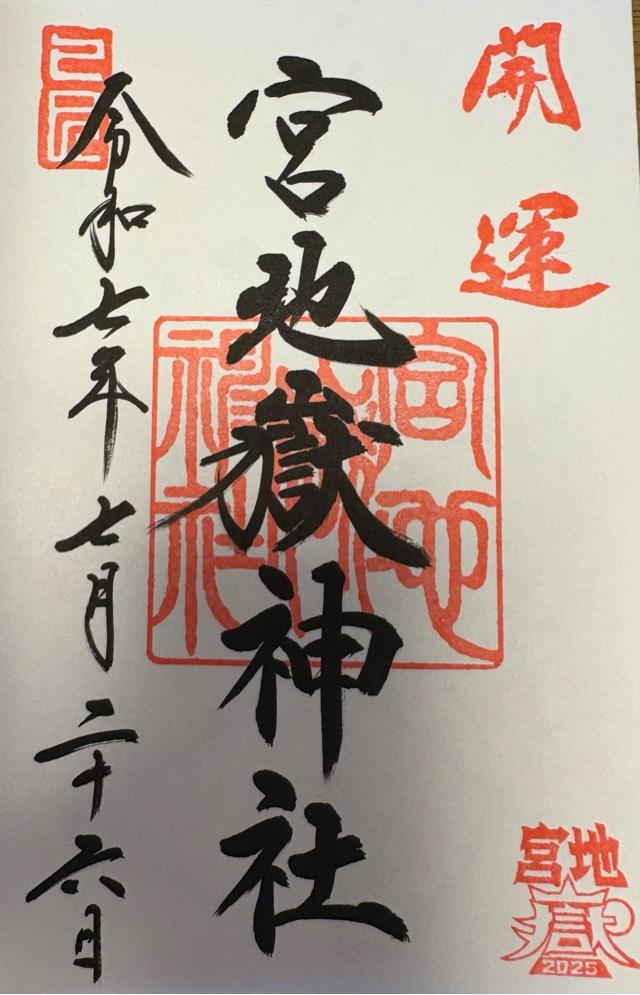 開運
宮地嶽神社
宮地嶽神社
令和七年七月二十六日
乙巳
宮地
嶽
2025